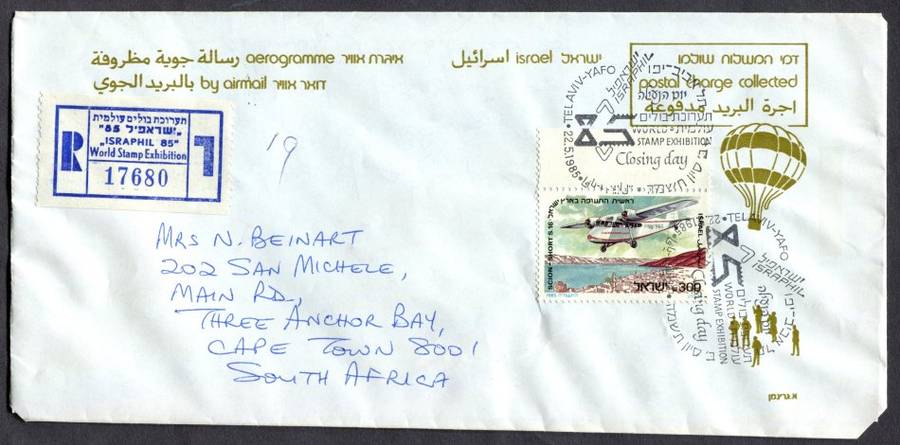 איגרת אוויר aerogramme رسالة جوية مظروفة
דואר אוויר by airmail بالبريد الجوي
ישראל israel اسرائيل
דמי המשלוח שולמו
postal charge collected
اجرة البريد مدفوعة
תערוכת בולים עולמית
"ישראפיל 85"
"ISRAPHIL 85"
World Stamp Exhibition
R
17680
19
TELAVIV-YAFO
22.5.1985
תל אביב-יפו
ישראפיל
ISRAPHIL
יום הנעילה
תערוכת בולים
עולמית
85
WORLD
STAMP EXHIBITION
Closing day
ראשית התעופה בארץ
SCION - SHORT S.16
ISRAEL ישראל
300 ישראל
1985
TELAVIV-YAFO
22.5.1985
ישראפיל
ISRAPHIL
85
WORLD
STAMP EXHIBITION
Closing day
MRS N. BEINART
202 SAN MICHELE,
MAIN RD.,
THREE ANCHOR BAY,
CAPE TOWN 8001
SOUTH AFRICA
א.גרינמן